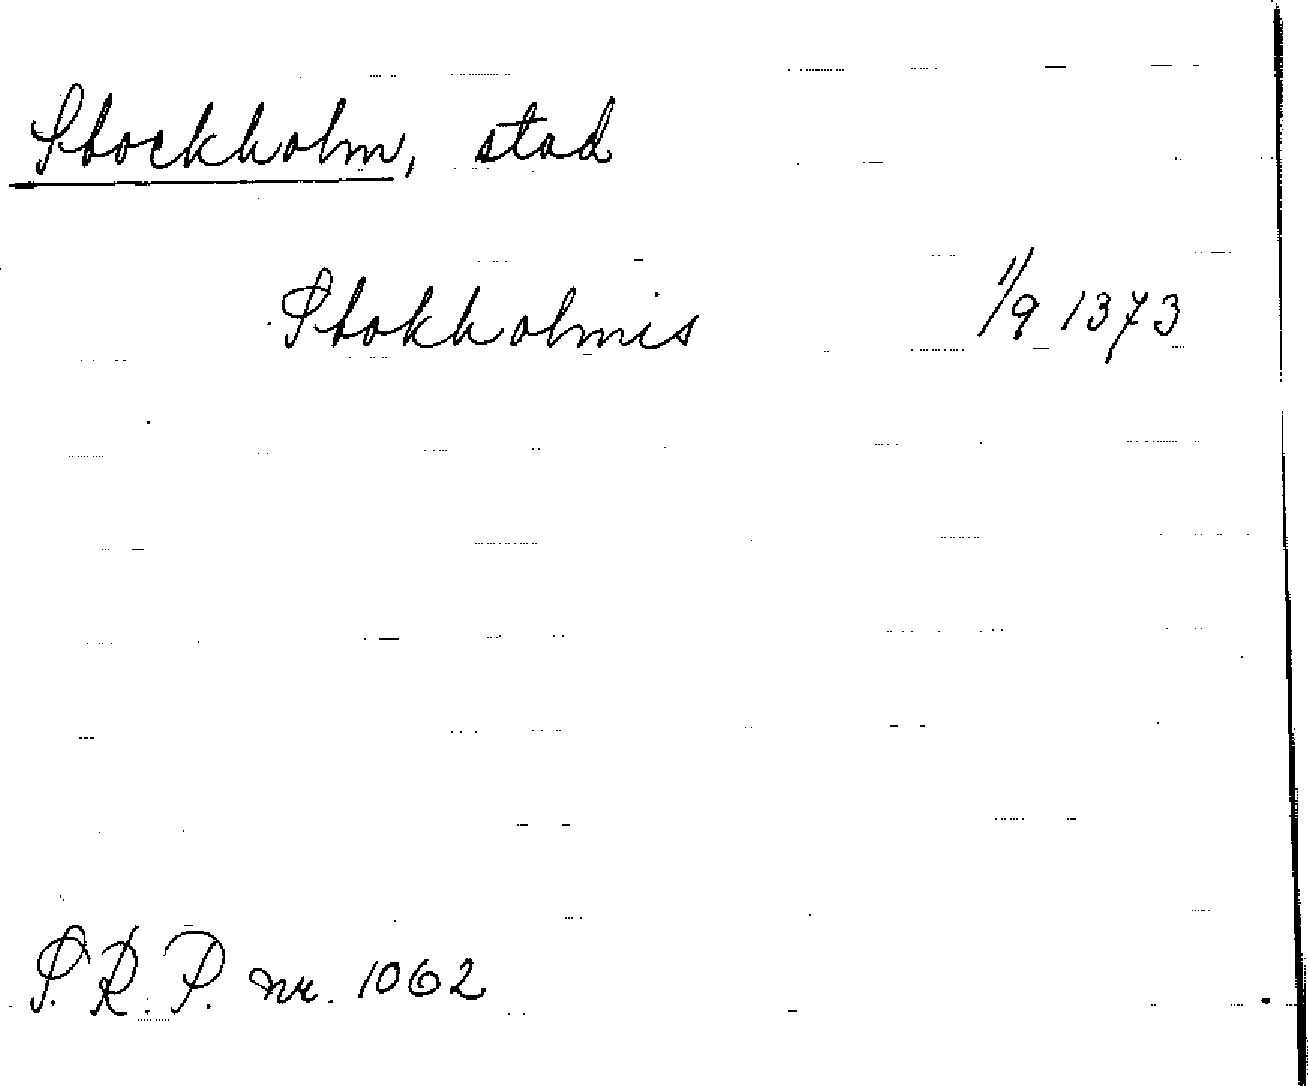 Stockholm, stad
Stokholmis 1/9 1373
S.R.P. nr. 1062